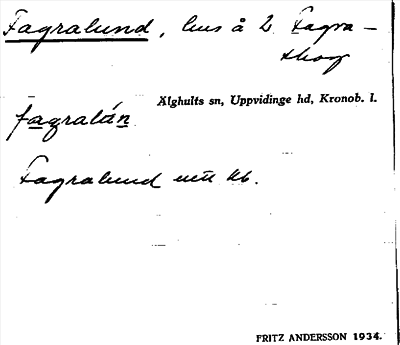 Fagralund, hus å 2 Fagra-
skog
Älghults sn, Uppvidinge hd, Kronob. l.
fagralún
Fagralund utt kb.
FRITZ ANDERSSON 1934.